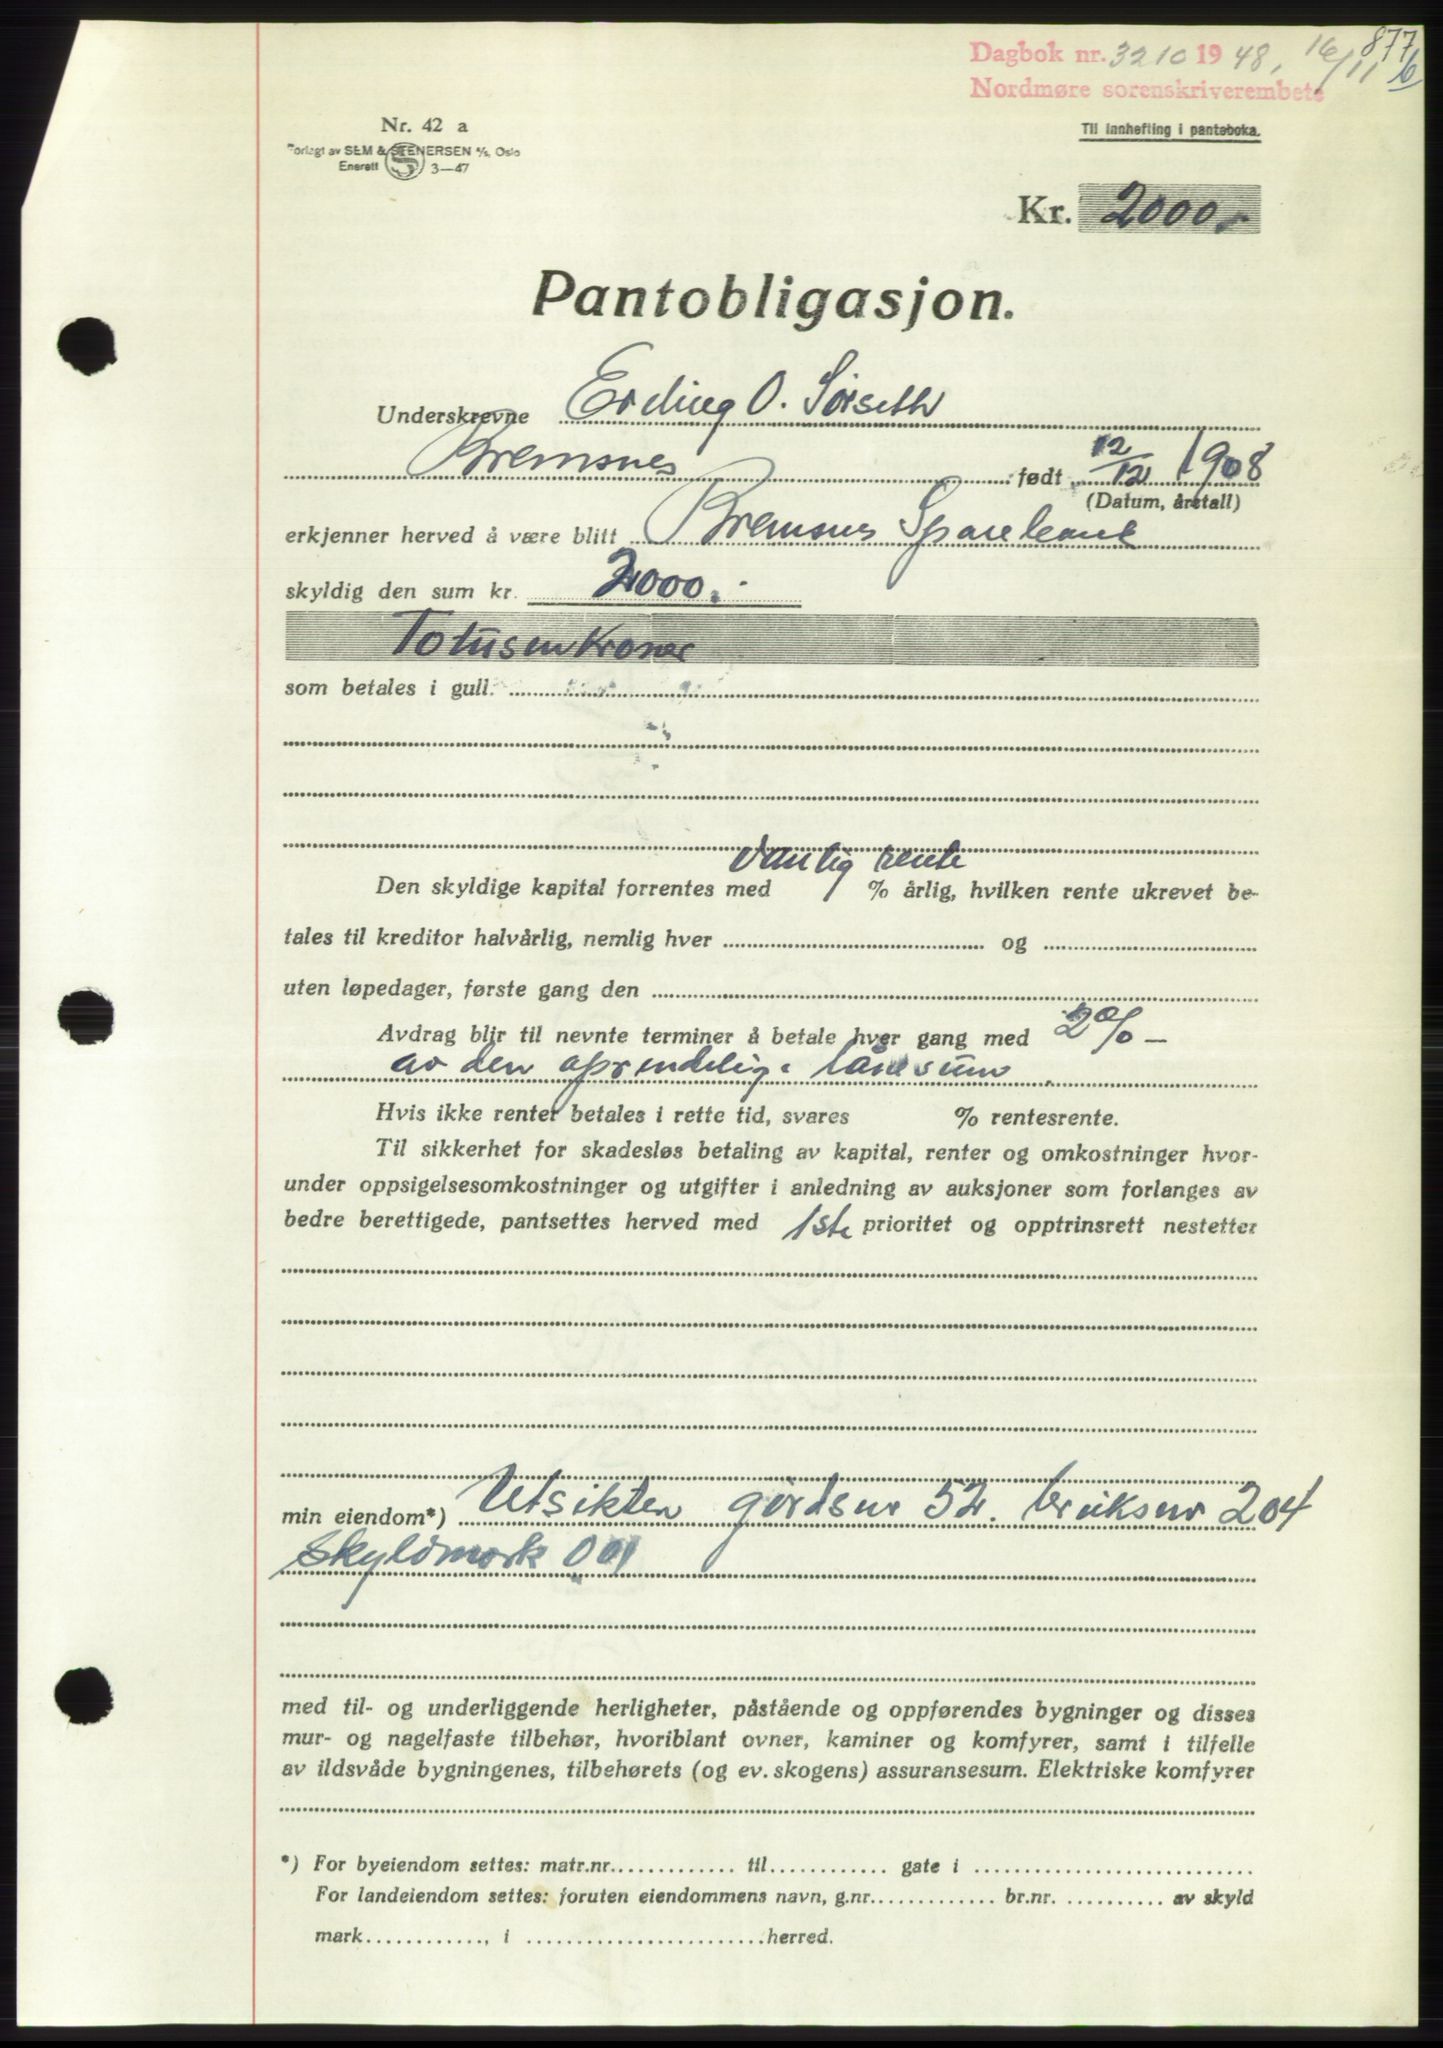 877
b
Dagbok nr. 3210 1948, 16/11
Nordmøre sorenskriverembete
Nr. 42 a
Til innhefting i panteboka.
Forlagt av SEM & STENERSEN A/S, Oslo
Enerett S 3—47
Kr. 2000,-
Pantobligasjon.
Underskrevne Erling O. Sørseth
Bremsnes født 12/12 1908
(Datum, årstall)
erkjenner herved å være blitt Bremsnes Sparebank
skyldig den sum kr. 2000.-
Totusenkroner
som betales i gull.
vanlig rente
Den skyldige kapital forrentes med % årlig, hvilken rente ukrevet be-
tales til kreditor halvårlig, nemlig hver og
uten løpedager, første gang den
Avdrag blir til nevnte terminer å betale hver gang med 2% —
av den oprindelige lånesum
Hvis ikke renter betales i rette tid, svares % rentesrente.
Til sikkerhet for skadesløs betaling av kapital, renter og omkostninger hvor-
under oppsigelsesomkostninger og utgifter i anledning av auksjoner som forlanges av
bedre berettigede, pantsettes herved med 1ste prioritet og opptrinsrett nestetter
min eiendom*) Utsikten gårdsnr 52. bruksnr 204
Skyldmark 0 01
med til- og underliggende herligheter, påstående og oppførendes bygninger og disses
mur- og nagelfaste tilbehør, hvoriblant ovner, kaminer og komfyrer, samt i tilfelle
av ildsvåde bygningenes, tilbehørets (og ev. skogens) assuransesum. Elektriske komfyrer
*) For byeiendom settes: matr.nr. til gate i
For landeiendom settes: foruten eiendommens navn, g.nr. br.nr. av skyld
mark , i herred.